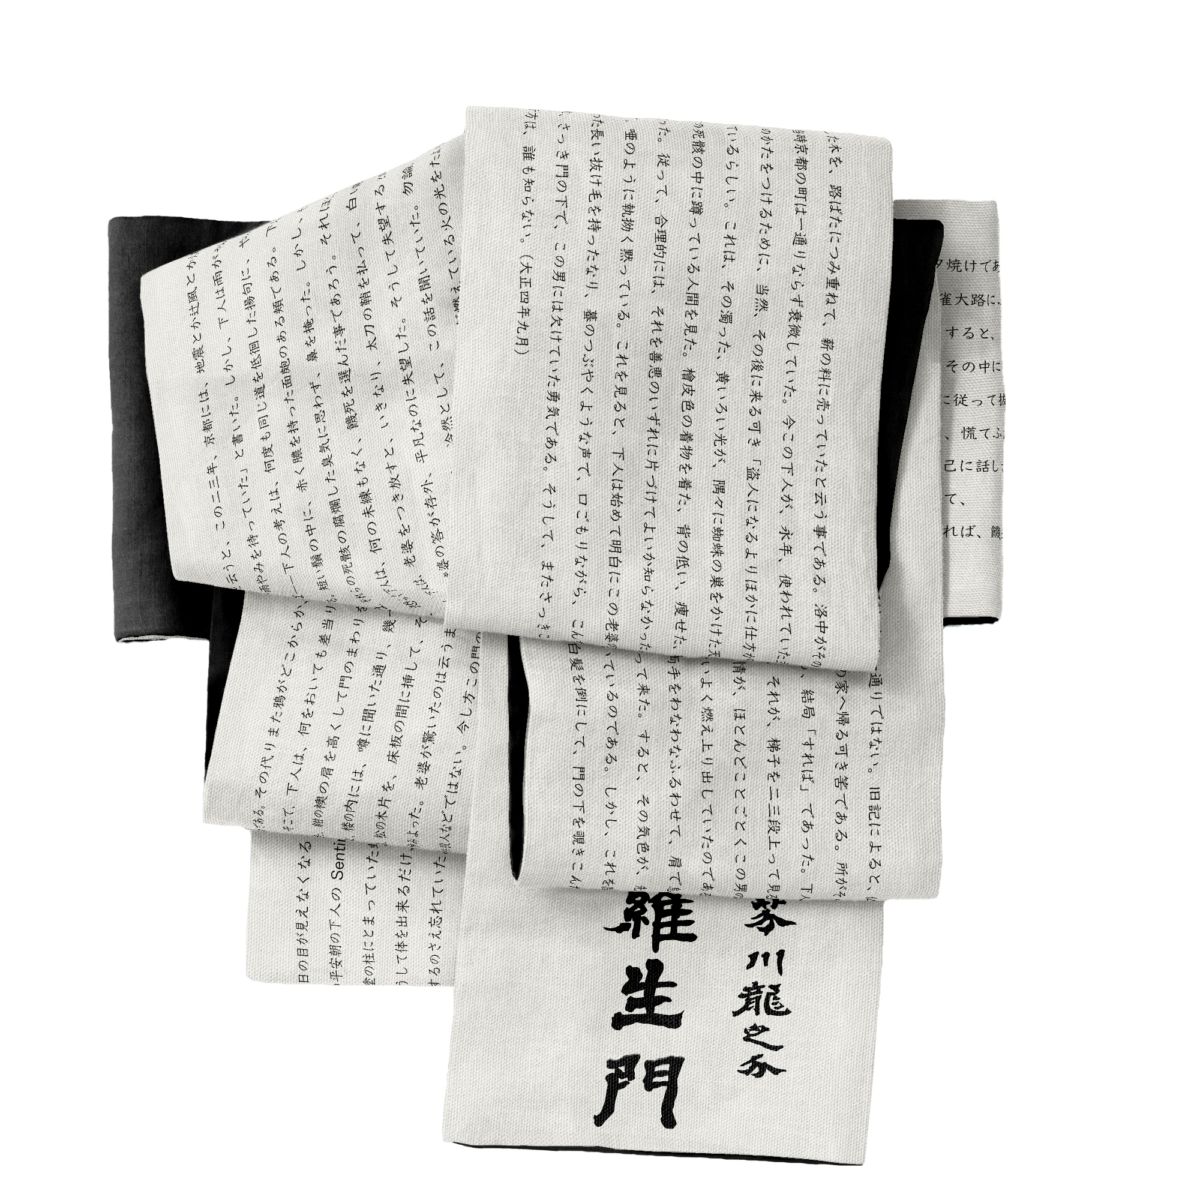 た木を、路ばたにつみ重ねて、薪の料に売っていたと云う事である。洛中がその
時京都の町は一通りならず衰微していた。今この下人が、永年、使われていた
のかたをつけるために、当然、その後に来る可き「盗人になるよりほかに仕方
ているらしい。これは、その濁った、黄いろい光が、隅々に蜘蛛の巣をかけた天
の死骸の中に蹲っている人間を見た。檜皮色の着物を着た、背の低い、痩せた、
った。従って、合理的には、それを善悪のいずれに片づけてよいか知らなかった
、唖のように執拗く黙っている。これを見ると、下人は始めて明白にこの老婆
った長い抜け毛を持ったなり、蟇のつぶやくような声で、口ごもりながら、こん
、さっき門の下で、この男には欠けていた勇気である。そうして、またさっきこ
方は、誰も知らない。（大正四年九月）
云うと、この二三年、京都には、地震とか辻風とか
雨やみを待っていた」と書いた。しかし、下人は雨が
下人の考えは、何度も同じ道を低徊した揚句に、や
短い鬚の中に、赤く膿を持った面皰のある頬である。下
の死骸の腐爛した臭気に思わず、鼻を掩った。しかし、
人は、何の未練もなく、饑死を選んだ事であろう。それほ
老婆をつき放すと、いきなり、太刀の鞘を払って、白い
婆の答が存外、平凡なのに失望した。そうして失望すると
冷然として、この話を聞いていた。勿論
燃えている火の光をた
夕焼けであ
雀大路にふ
すると、
その中に
に従って挨
、慌てふ
己に話し
て、
れば、饑
通りではない。旧記によると、仏
の家へ帰る可き筈である。所がそ
、結局「すれば」であった。下人
それが、梯子を二三段上って見
情が、ほとんどことごとくこの男の
いよく燃え上り出していたのである
両手をわなわなふるわせて、肩で
って来た。すると、その気色が、
ているのである。しかし、これを
白髪を倒にして、門の下を覗きこん
ある。その代りまた鴉がどこからか、
そこで、下人は、何をおいても差当り
紺の襖の肩を高くして門のまわりを
楼の内には、噂に聞いた通り、幾
松の木片を、床板の間に挿して、そ
老婆が驚いたのは云うま
人などではない。今し方この門の
日の目が見えなくなる
平安朝の下人の Senti
金の柱にとまっていた
うして体を出来るだけ
するのさえ忘れていた
羅生門
芥川龍之介